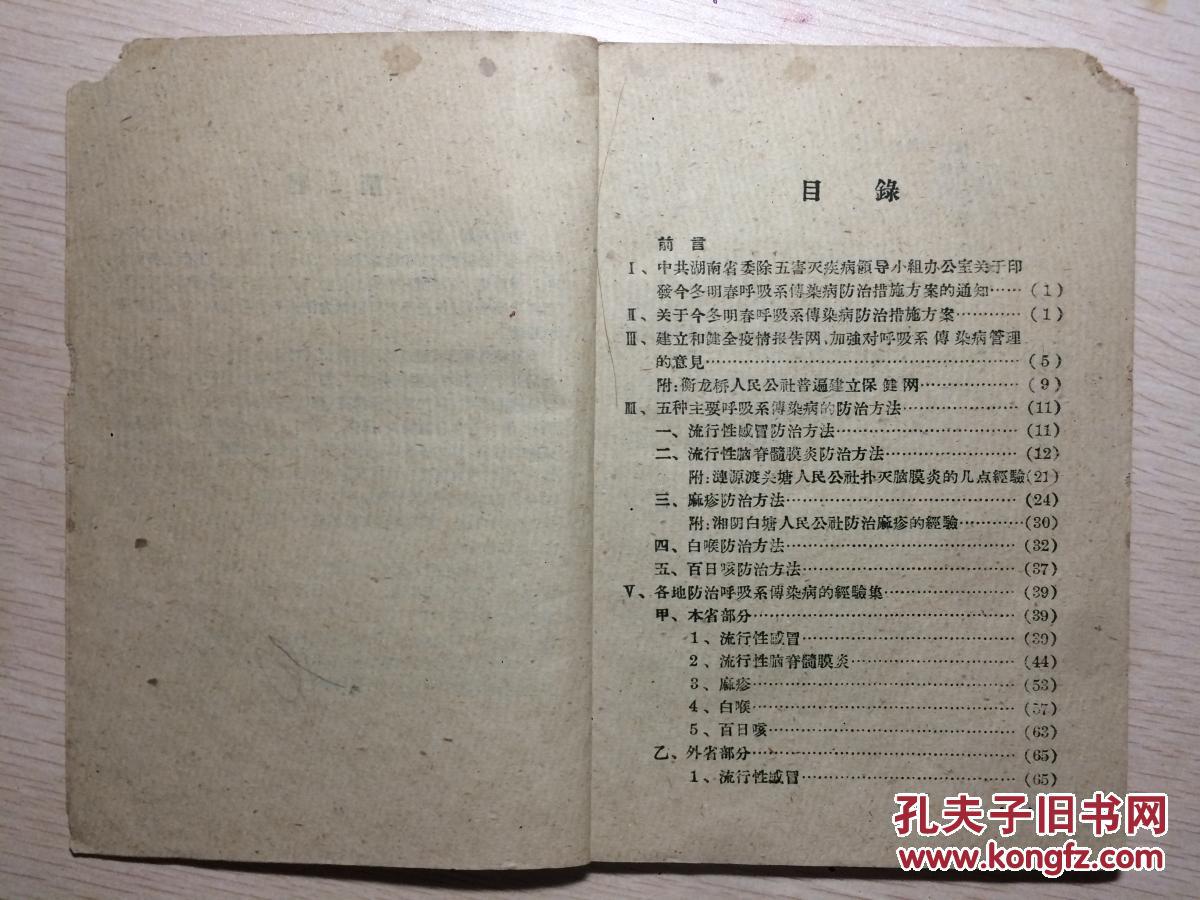 目錄
前言
Ⅰ、中共湖南省委除五害灭疾病領导小組办公室关于印
發今冬明春呼吸系傳染病防治措施方案的通知……(1)
Ⅱ、关于今冬明春呼吸系傳染病防治措施方案…………(1)
Ⅲ、建立和健全疫情报告网,加強对呼吸系傳染病管理
的意見……………………………………………………(5)
附:衡龙桥人民公社普遍建立保健网………………(9)
Ⅲ、五种主要呼吸系傳染病的防治方法…………………(11)
一、流行性感冒防治方法……………………………(11)
二、流行性脑脊髓膜炎防治方法……………………(12)
附:漣源渡头塘人民公社扑灭脑膜炎的几点經驗(21)
三、麻疹防治方法……………………………………(24)
附:湘阴白塘人民公社防治麻疹的經驗…………(30)
四、白喉防治方法……………………………………(32)
五、百日咳防治方法…………………………………(37)
Ⅴ、各地防治呼吸系傳染病的經驗集……………………(39)
甲、本省部分…………………………………………(39)
1、流行性感冒………………………………………(39)
2、流行性脑脊髓膜炎………………………………(44)
3、麻疹………………………………………………(53)
4、白喉………………………………………………(57)
5、百日咳……………………………………………(63)
乙、外省部分…………………………………………(65)
1、流行性感冒………………………………………(65)
孔夫子旧书网
www.kongfz.com